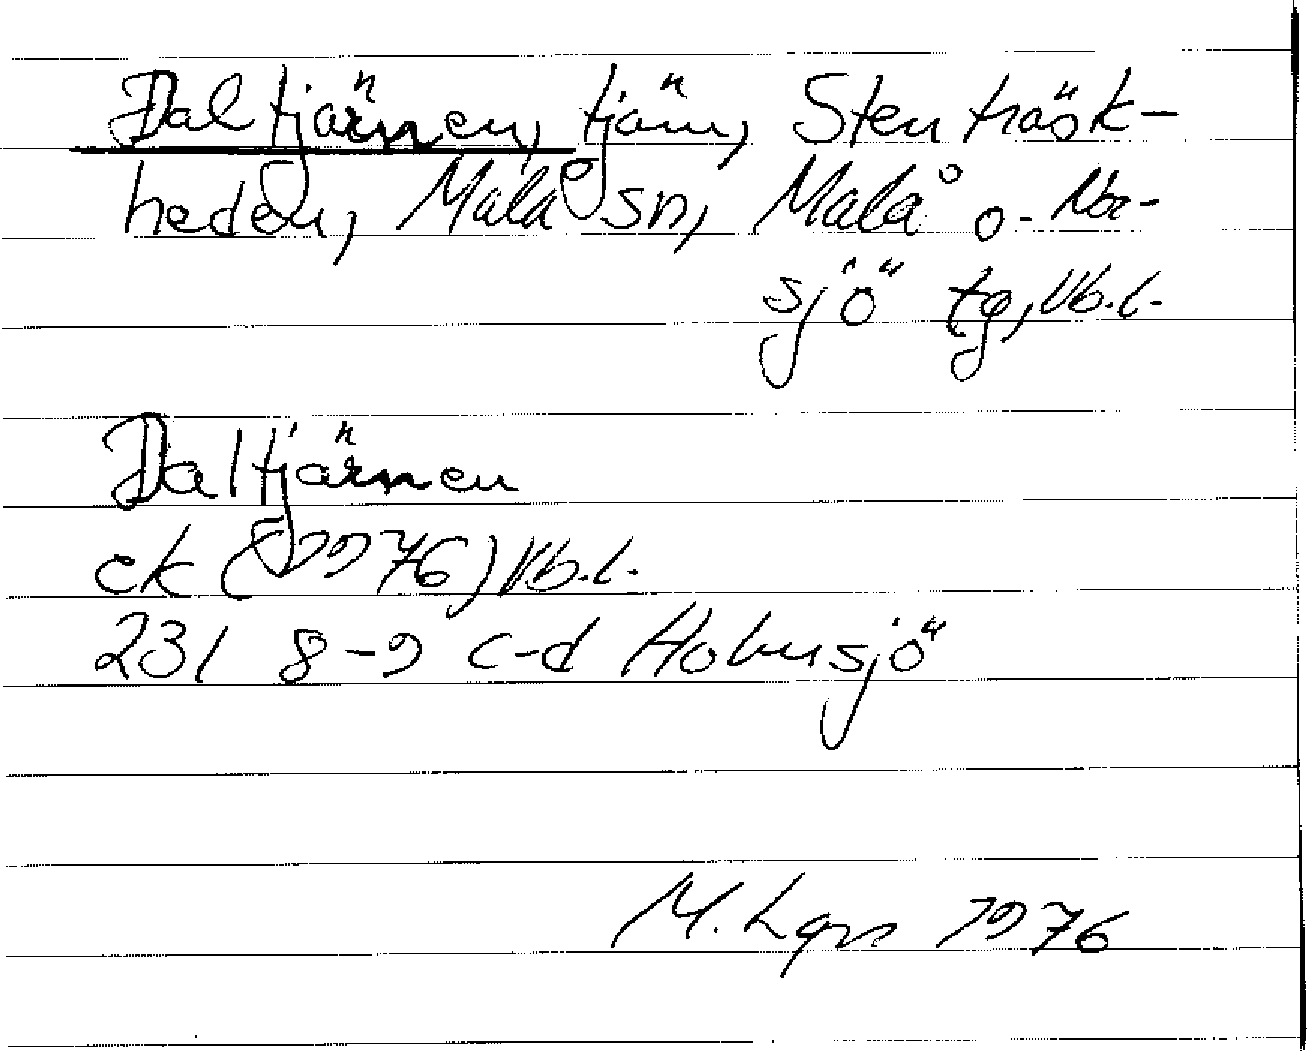 Daltjärnen, tjärn, Stenträsk-
heden, Malå sn, Malå o. Nor-
sjö tg, Vb.l.
Daltjärnen
ek (1976) Vb.l.
23I 8-9 c-d Holmsjö
M. Lgn 1976